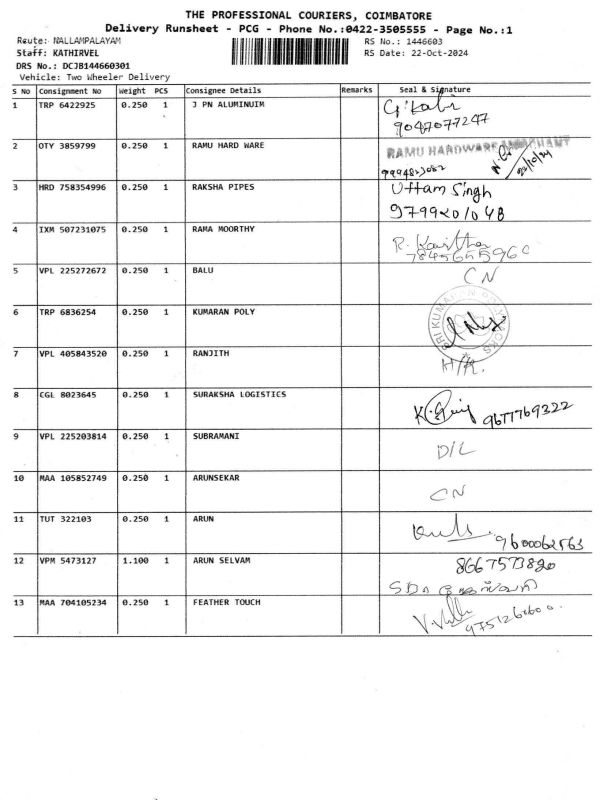 THE PROFESSIONAL COURIERS, COIMBATORE
Delivery Runsheet - PCG - Phone No.:0422-3505555 - Page No.:1
Route: NALLAMPALAYAM RS No.: 1446603
Staff: KATHIRVEL RS Date: 22-Oct-2024
DRS No.: DCJB144660301
Vehicle: Two Wheeler Delivery
S No Consignment No Weight PCS Consignee Details Remarks Seal & Signature
1 TRP 6422925 0.250 1 J PN ALUMINUIM
9047077247
2 OTY 3859799 0.250 1 RAMU HARD WARE RAMU HARDWARE
9994823082 22/10/24
3 HRD 758354996 0.250 1 RAKSHA PIPES Uttam Singh
9799201048
4 IXM 507231075 0.250 1 RAMA MOORTHY
7845655960
5 VPL 225272672 0.250 1 BALU CN
6 TRP 6836254 0.250 1 KUMARAN POLY SRI KUMARAN POLY PACKS
7 VPL 405843520 0.250 1 RANJITH H/R.
8 CGL 8023645 0.250 1 SURAKSHA LOGISTICS 9677769322
9 VPL 225203814 0.250 1 SUBRAMANI D/L
10 MAA 105852749 0.250 1 ARUNSEKAR CN
11 TUT 322103 0.250 1 ARUN 9600062563
12 VPM 5473127 1.100 1 ARUN SELVAM 8667573820
13 MAA 704105234 0.250 1 FEATHER TOUCH